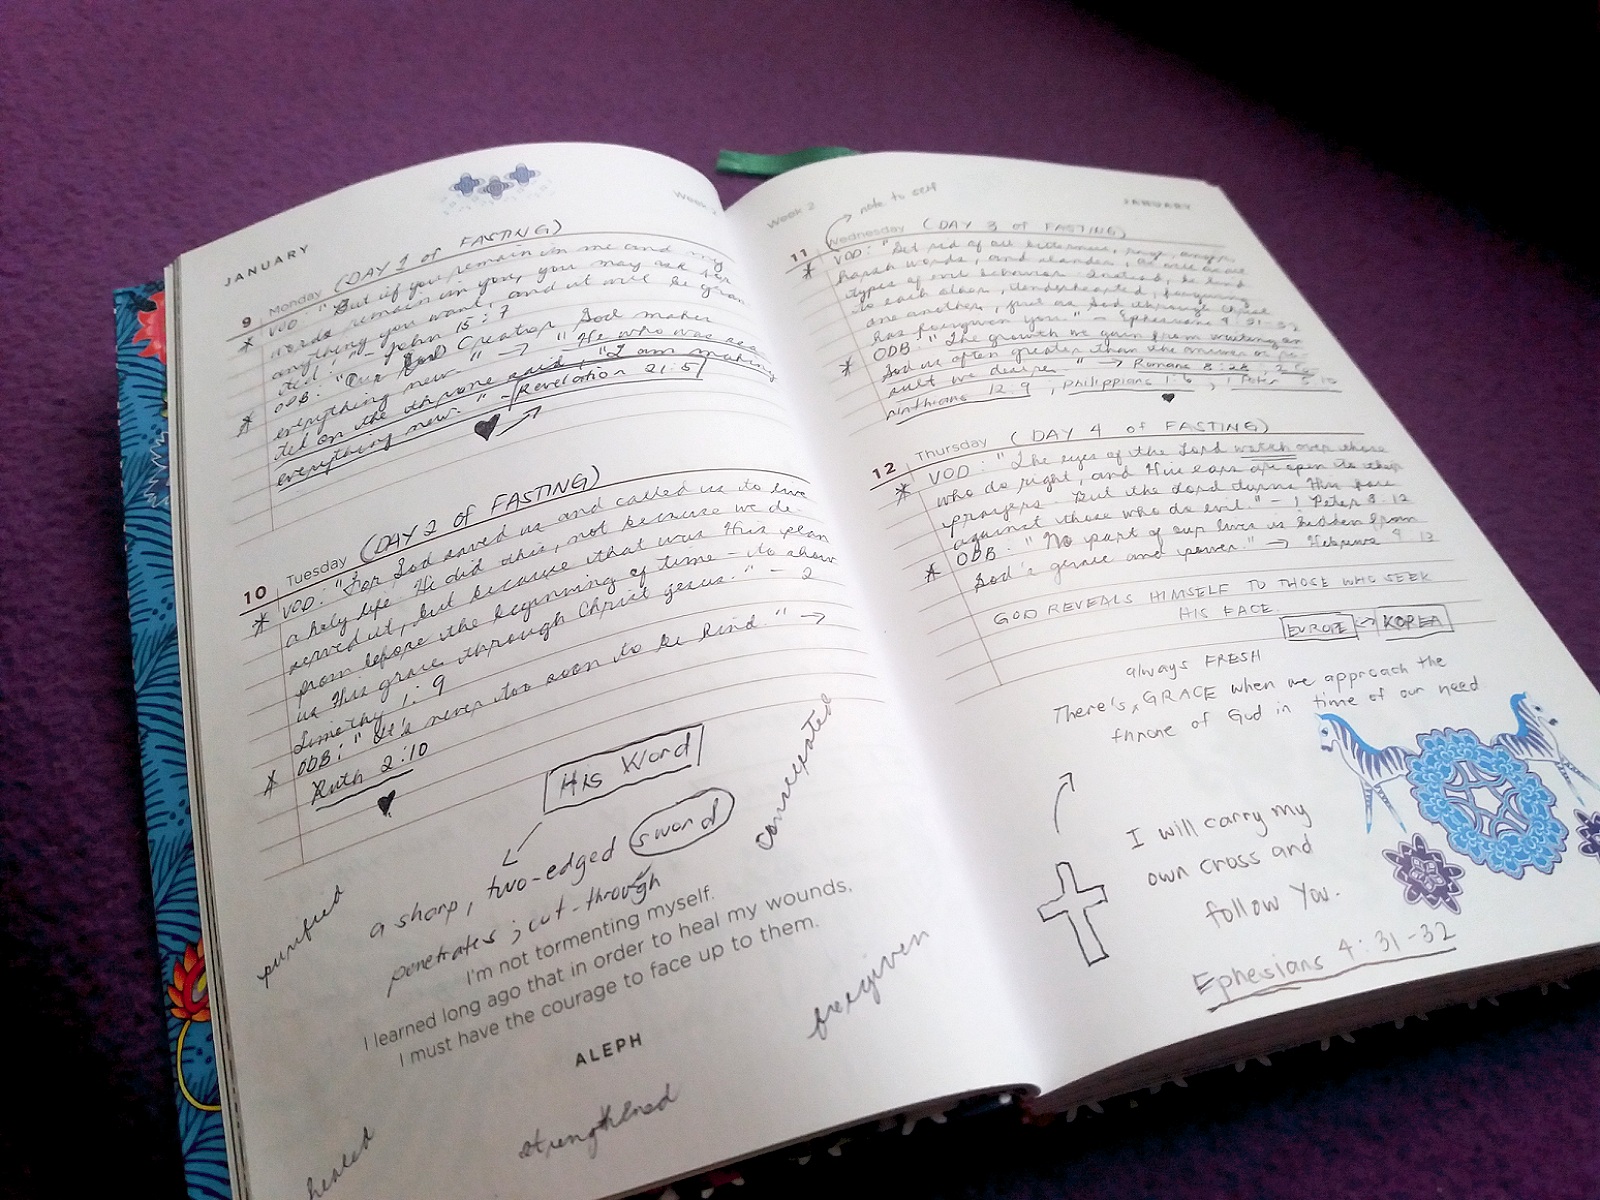 JANUARY
Week 2
9 Monday (DAY 1 of FASTING)
* VOD: "But if you remain in me and my
words remain in you, you may ask for
anything you want, and it will be gran-
ted." - John 15:7
* ODB: "Our Creator God makes
everything new." → "He who was sea-
ted on the throne said, "I am making
everything new." - Revelation 21:5
10 Tuesday (DAY 2 of FASTING)
* VOD: "For God saved us and called us to live
a holy life. He did this, not because we de-
served it, but because that was His plan
from before the beginning of time - to show
us His grace through Christ Jesus." - 2
Timothy 1:9
* ODB: "It's never too soon to be kind." →
Ruth 2:10
His Word
a sharp, two-edged sword
penetrates; cut-through
consecrated
purified
I'm not tormenting myself.
I learned long ago that in order to heal my wounds,
I must have the courage to face up to them.
ALEPH
forgiven
strengthened
healed
Week 2
note to self
JANUARY
11 Wednesday (DAY 3 of FASTING)
* VOD: "Get rid of all bitterness, rage, anger,
harsh words, and slander, as well as all
types of evil behavior. Instead, be kind
to each other, tenderhearted, forgiving
one another, just as God through Christ
has forgiven you." - Ephesians 4:31-32
* ODB: "The growth we gain from waiting on
God is often greater than the answer or re-
sult we desire." → Romans 8:28, 2 Co
rinthians 12:9, Philippians 1:6, 1 Peter 5:10
12 Thursday (DAY 4 of FASTING)
* VOD: "The eyes of the Lord watch over those
who do right, and His ears are open to their
prayers. But the Lord turns His face
against those who do evil." - 1 Peter 3:12
* ODB: "No part of our lives is hidden from
God's grace and power." → Hebrews 4:13
GOD REVEALS HIMSELF TO THOSE WHO SEEK
HIS FACE.
EUROPE → KOREA
always FRESH
There's GRACE when we approach the
throne of God in time of our need
I will carry my
own cross and
follow You.
Ephesians 4:31-32